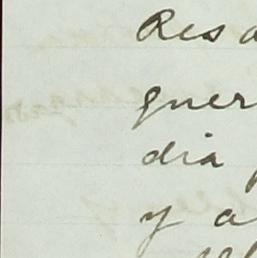 Res
guer
dia
y a